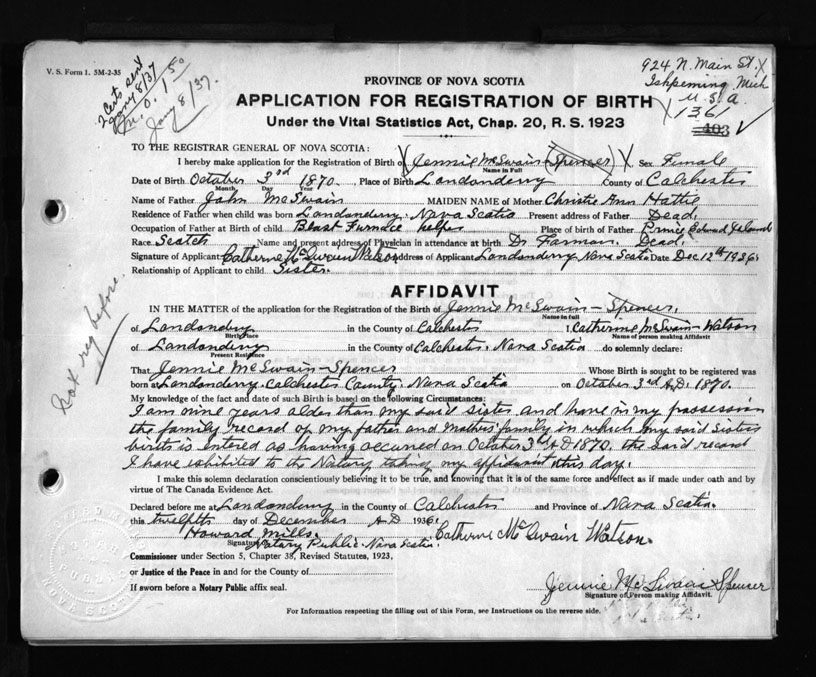 V. S. Form 1. 5M-2-35
2 Certs sent
Jany 8/37
M.O. 1.50
Jany 8/37.
924 N. Main St.
Ishpeming Mich
U.S.A.
1361
403
PROVINCE OF NOVA SCOTIA
APPLICATION FOR REGISTRATION OF BIRTH
Under the Vital Statistics Act, Chap. 20, R. S. 1923
TO THE REGISTRAR GENERAL OF NOVA SCOTIA:
I hereby make application for the Registration of Birth of Jennie McSwain (Spencer) Sex Female
Name in Full
Date of Birth October 3rd 1870. Place of Birth Londonderry County of Colchester
Month Day Year
Name of Father John McSwain MAIDEN NAME of Mother Christie Ann Hattie
Residence of Father when child was born Londonderry, Nova Scotia Present address of Father Dead.
Occupation of Father at Birth of child Blast Furnace helper Place of birth of Father Prince Edward Island
Race Scotch Name and present address of Physician in attendance at birth Dr. Dead.
Signature of Applicant Catherine McSwain Watson Address of Applicant Londonderry Nova Scotia Date Dec 12th 1936.
Relationship of Applicant to child Sister.
AFFIDAVIT
IN THE MATTER of the application for the Registration of the Birth of Jennie McSwain - Spencer.
Name in full
of Londonderry in the County of Colchester I, Catherine McSwain-Watson
Birth Place Name of person making Affidavit
of Londonderry in the County of Colchester, Nova Scotia do solemnly declare:
Present Residence
That Jennie McSwain-Spencer Whose Birth is sought to be registered was
born at Londonderry Colchester County, Nova Scotia on October 3rd A.D. 1870.
My knowledge of the fact and date of such Birth is based on the following Circumstances:
I am nine years older than my said sister and have in my possession
the family record of my father and Mothers family in which my said Sisters
birth is entered as having occurred on October 3rd A.D 1870. the said record
I have exhibited to the Notary taking my affidavit this day.
I make this solemn declaration conscientiously believing it to be true, and knowing that it is of the same force and effect as if made under oath and by
virtue of The Canada Evidence Act.
Declared before me at Londonderry in the County of Colchester and Province of Nova Scotia.
this twelfth day of December A.D 1936.
Howard Mills. Catherine McSwain Watson.
Signature Notary Public - Nova Scotia.
Commissioner under Section 5, Chapter 38, Revised Statutes, 1923,
or Justice of the Peace in and for the County of
If sworn before a Notary Public affix seal.
Jennie McSwain Spencer
Signature of Person making Affidavit.
For Information respecting the filling out of this Form, see Instructions on the reverse side.
Not reg before.
NOVA SCOTIA